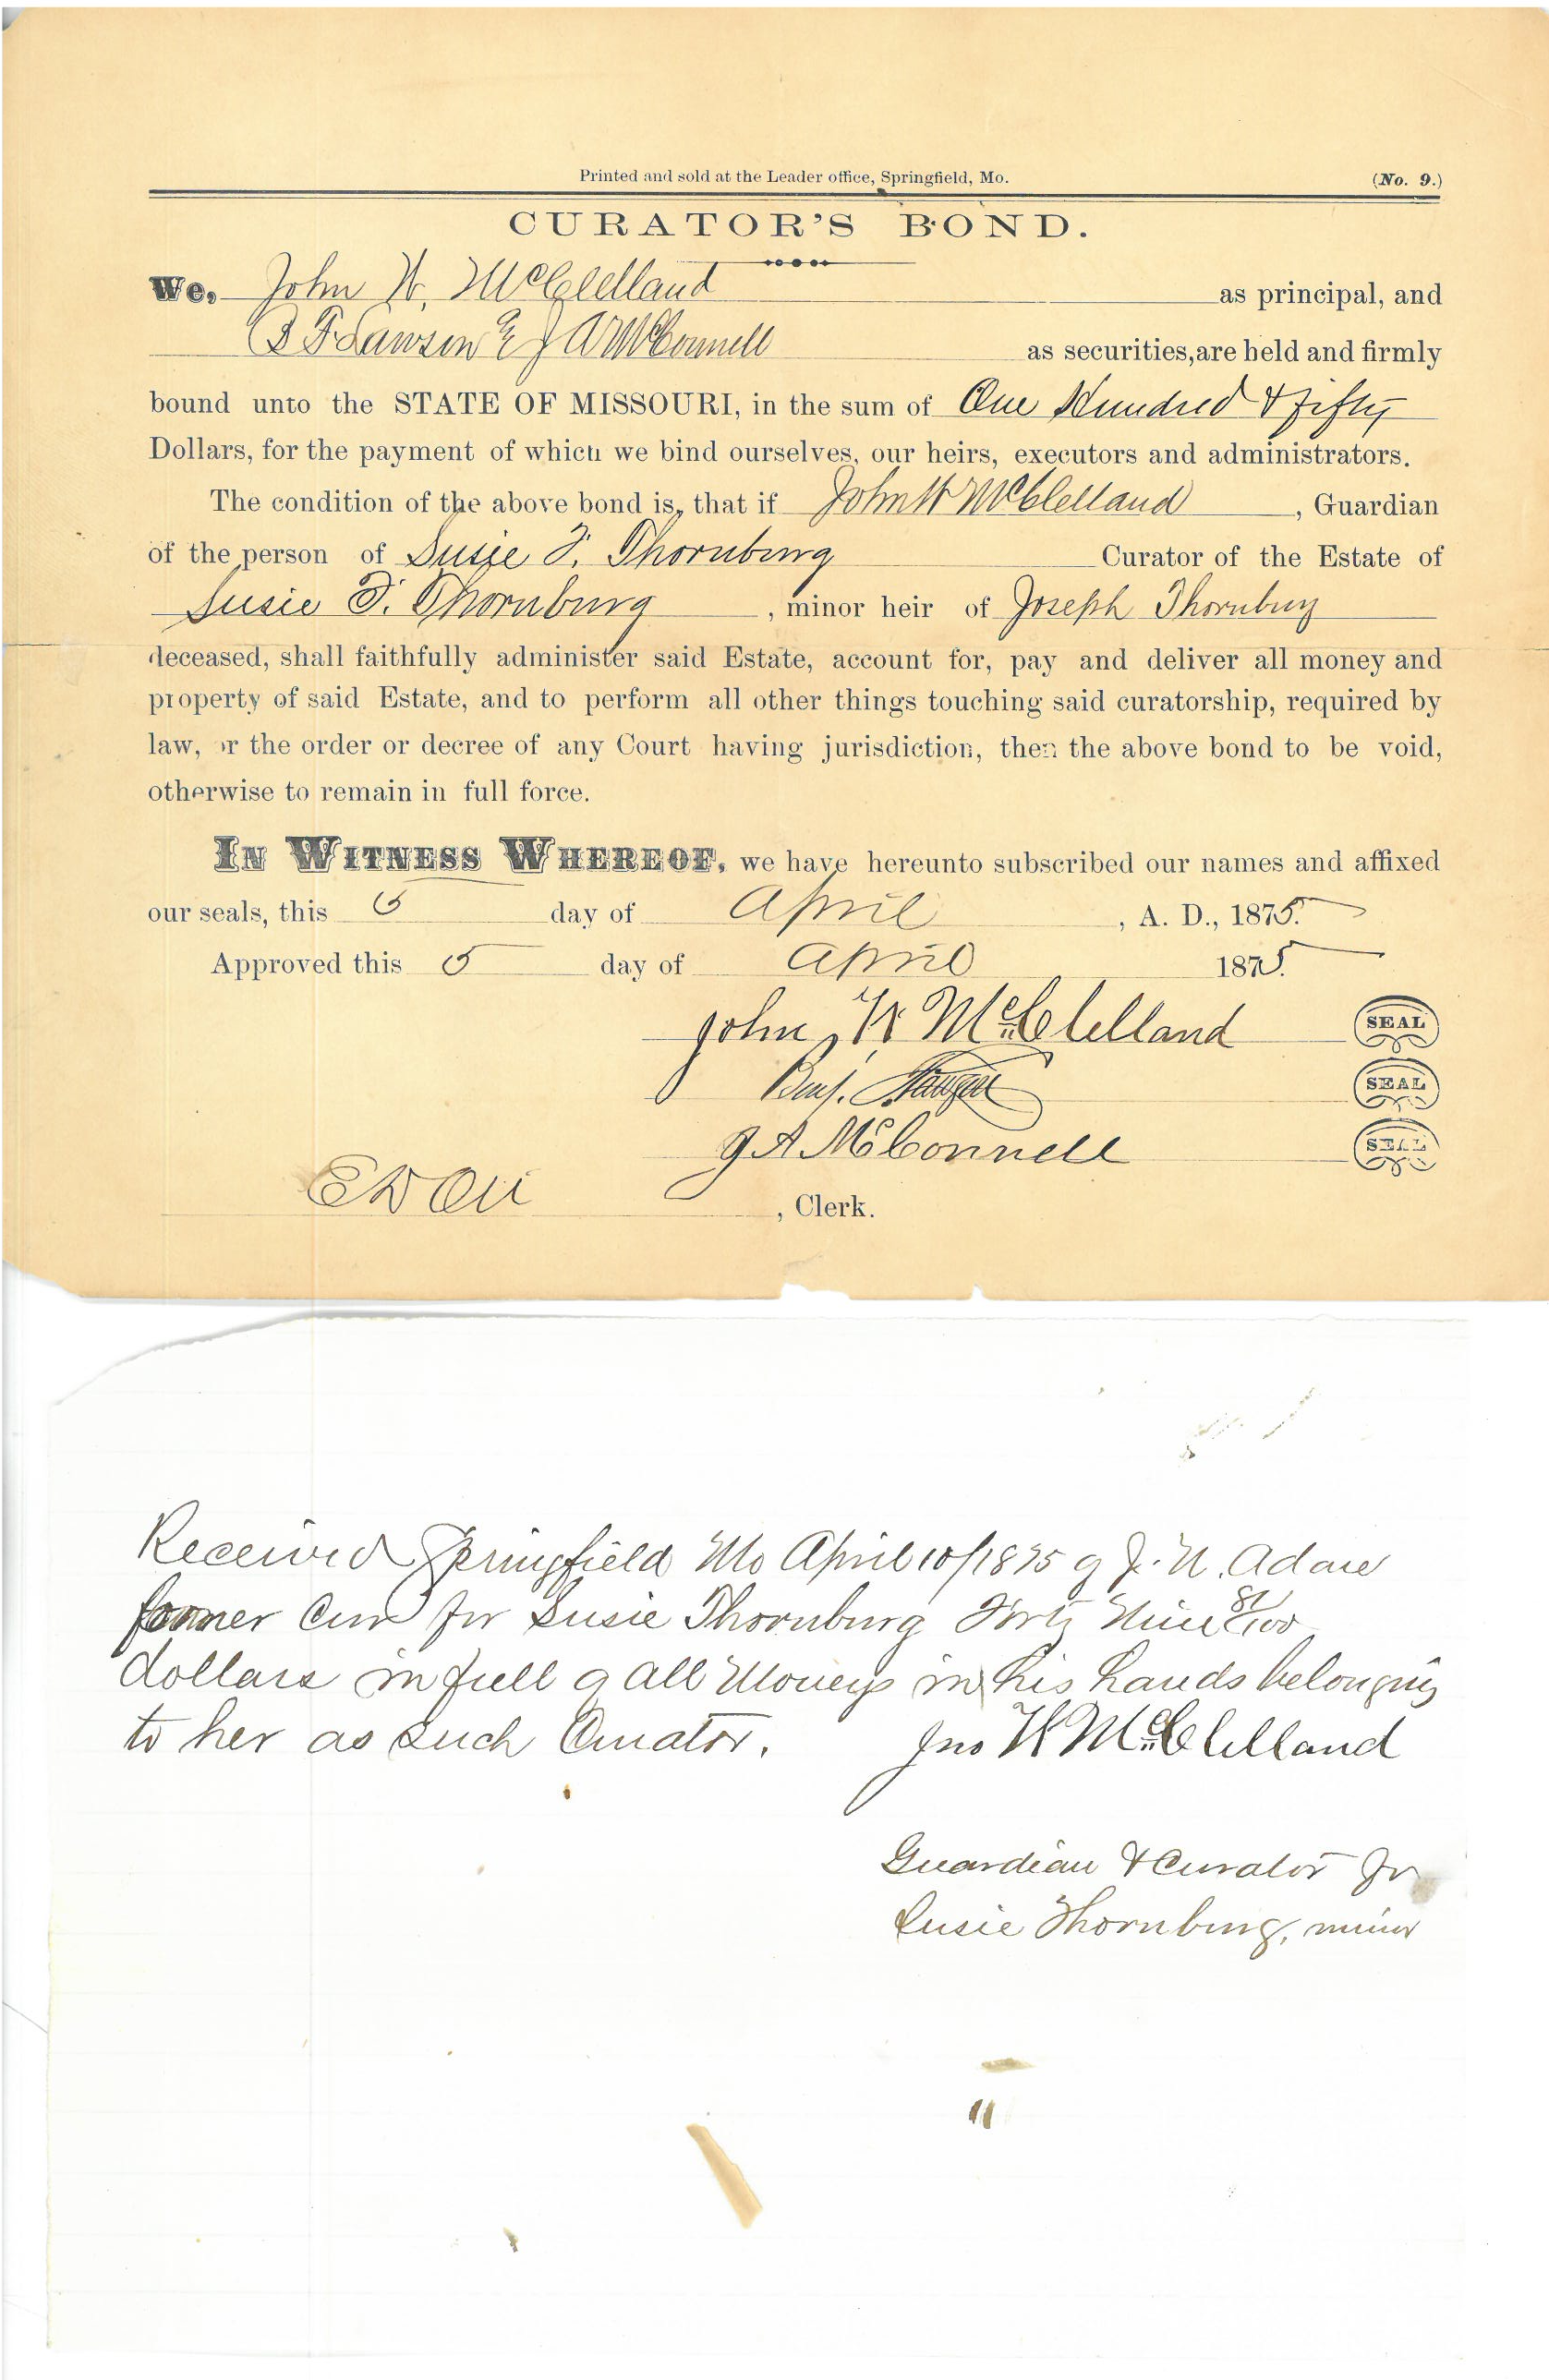 Printed and sold at the Leader office, Springfield, Mo. (No. 9.)
CURATOR'S BOND.
We, John W. McClelland as principal, and
B F Lawson & J A McConnell as securities, are held and firmly
bound unto the STATE OF MISSOURI, in the sum of One Hundred & fifty
Dollars, for the payment of which we bind ourselves, our heirs, executors and administrators.
The condition of the above bond is, that if John W McClelland, Guardian
of the person of Susie F. Thornburg Curator of the Estate of
Susie F. Thornburg, minor heir of Joseph Thornburg
deceased, shall faithfully administer said Estate, account for, pay and deliver all money and
property of said Estate, and to perform all other things touching said curatorship, required by
law, or the order or decree of any Court having jurisdiction, then the above bond to be void,
otherwise to remain in full force.
IN WITNESS WHEREOF, we have hereunto subscribed our names and affixed
our seals, this 5 day of April, A. D., 1875.
Approved this 5 day of April 1875.
John W McClelland SEAL
Benj. SEAL
J A McConnell SEAL
E D Ott, Clerk.
Received Springfield Mo April 10/1875 of J. N. Adare
former Cur for Susie Thornburg Forty Nine 81/100
dollars in full of all Moneys in his hands belonging
to her as such Curator. Jno W McClelland
Guardian & Curator for
Susie Thornburg, minor